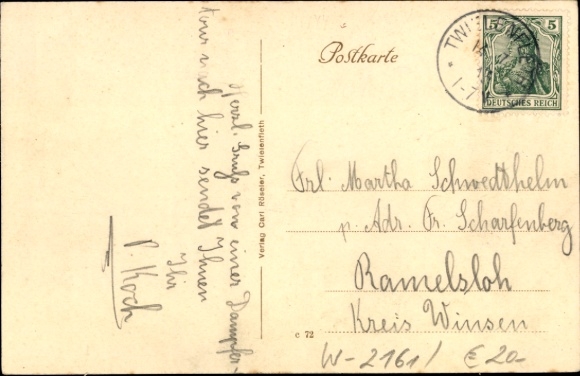 Postkarte
TWIELENFLETH
1-7 V
5 5
DEUTSCHES REICH
Herzl. Gruß von einer Dampfer-
tour nach hier sendet Ihnen
Ihr
P. Koch
Verlag Carl Röseler, Twielenfleth
Frl. Martha Schwedthelm
p. Adr. Fr. Scharfenberg
Ramelsloh
Kreis Winsen
c 72
W-2161/ € 20-